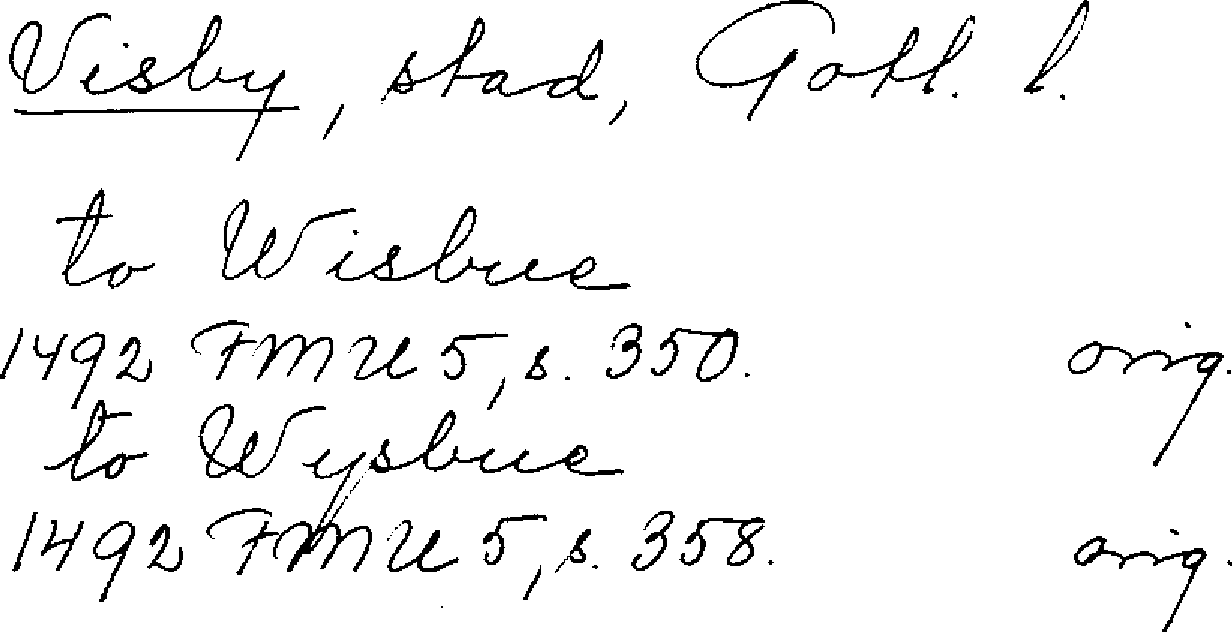 Visby, stad, Gotl. l.
to Wisbue
1492 FMU 5, s. 350. orig.
to Wysbue
1492 FMU 5, s. 358. orig.